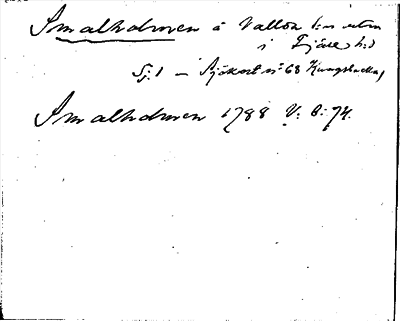 Smalholmen å Vallda s:n utom
i Fjäre h:d
Sj. 1 — Sjökort nº 68 Kungsbacka,
Smalholmen 1788 V: 8: 74.